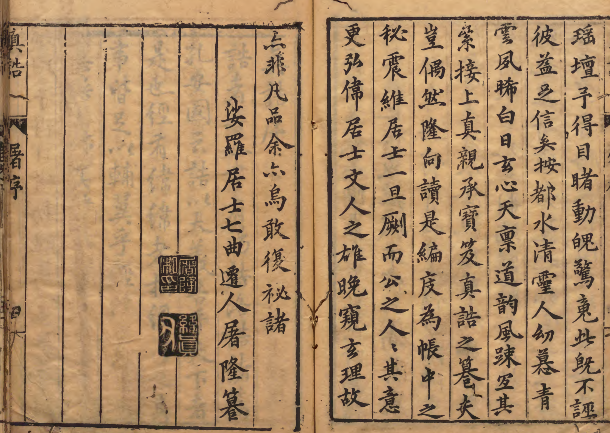 瑶壇予得目睹動魄驚䰟此既不誣
彼益足信矣按都水清靈人幼慕青
雲夙晞白日玄心天稟道韵風踈空其
縈接上真親承寶笈真誥之篹夫
豈偶然隆向讀是編庋為帳中之
秘震維居士一旦劂而公之人〻其意
更弘偉居士文人之雄晚窺玄理故
亦非凡品余亦烏敢復祕諸
娑羅居士七曲遷人屠隆篹
真誥
屠序
四